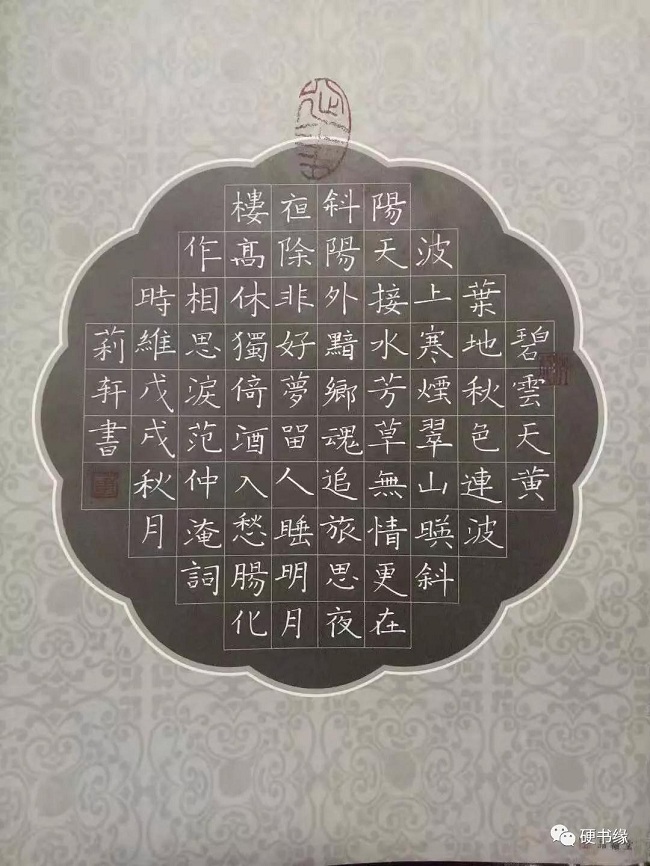 碧雲天黄
葉地秋色連波
波上寒煙翠山暎斜
陽天接水芳草無情更在
斜陽外黯鄉魂追旅思夜
亱除非好夢㽞人睡明月
樓髙休獨倚酒入愁腸化
作相思淚范仲淹詞
時維戊戌秋月
莉轩書
硬书缘